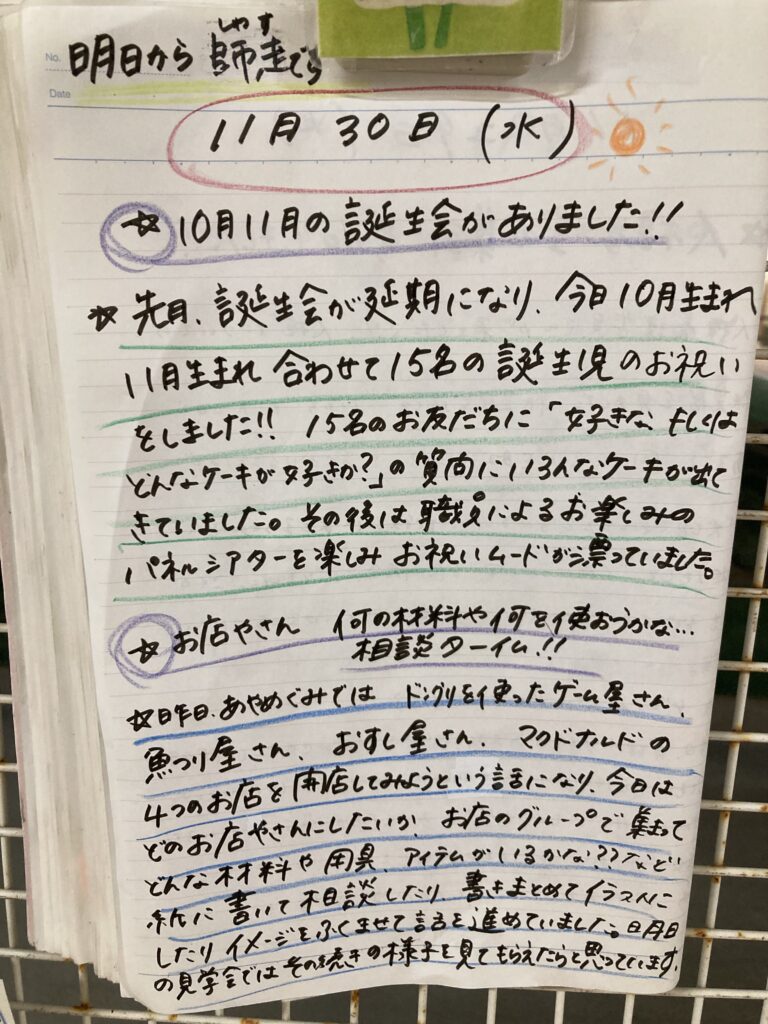 しわす
No. 明日から 師走でら
Date
11月 30日 (水)
☆10月11月の誕生会がありました!!
☆先月、誕生会が延期になり、今日10月生まれ
11月生まれ 合わせて15名の誕生児のお祝い
をしました!! 15名のお友だちに「好きな、もしくは
どんなケーキが好きか?」の質問にいろんなケーキが出て
きていました。その後は職員によるお楽しみの
パネルシアターを楽しみ お祝いムードが漂っていました。
☆お店やさん 何の材料や何を使おうかな…
相談ターイム!!
☆昨日、あやめぐみでは ドングリを使ったゲーム屋さん、
魚つり屋さん、おすし屋さん、マクドナルドの
4つのお店を開店してみようという話になり、今日は
どのお店やさんにしたいか、お店のグループで集まって
どんな材料や用具、アイテムがいるかな??など
紙に書いて相談したり、書きまとめてイラストに
したりイメージをふくませて話を進めていました。明日
の見学会ではその続きの様子を見てもらえたらと思っています。